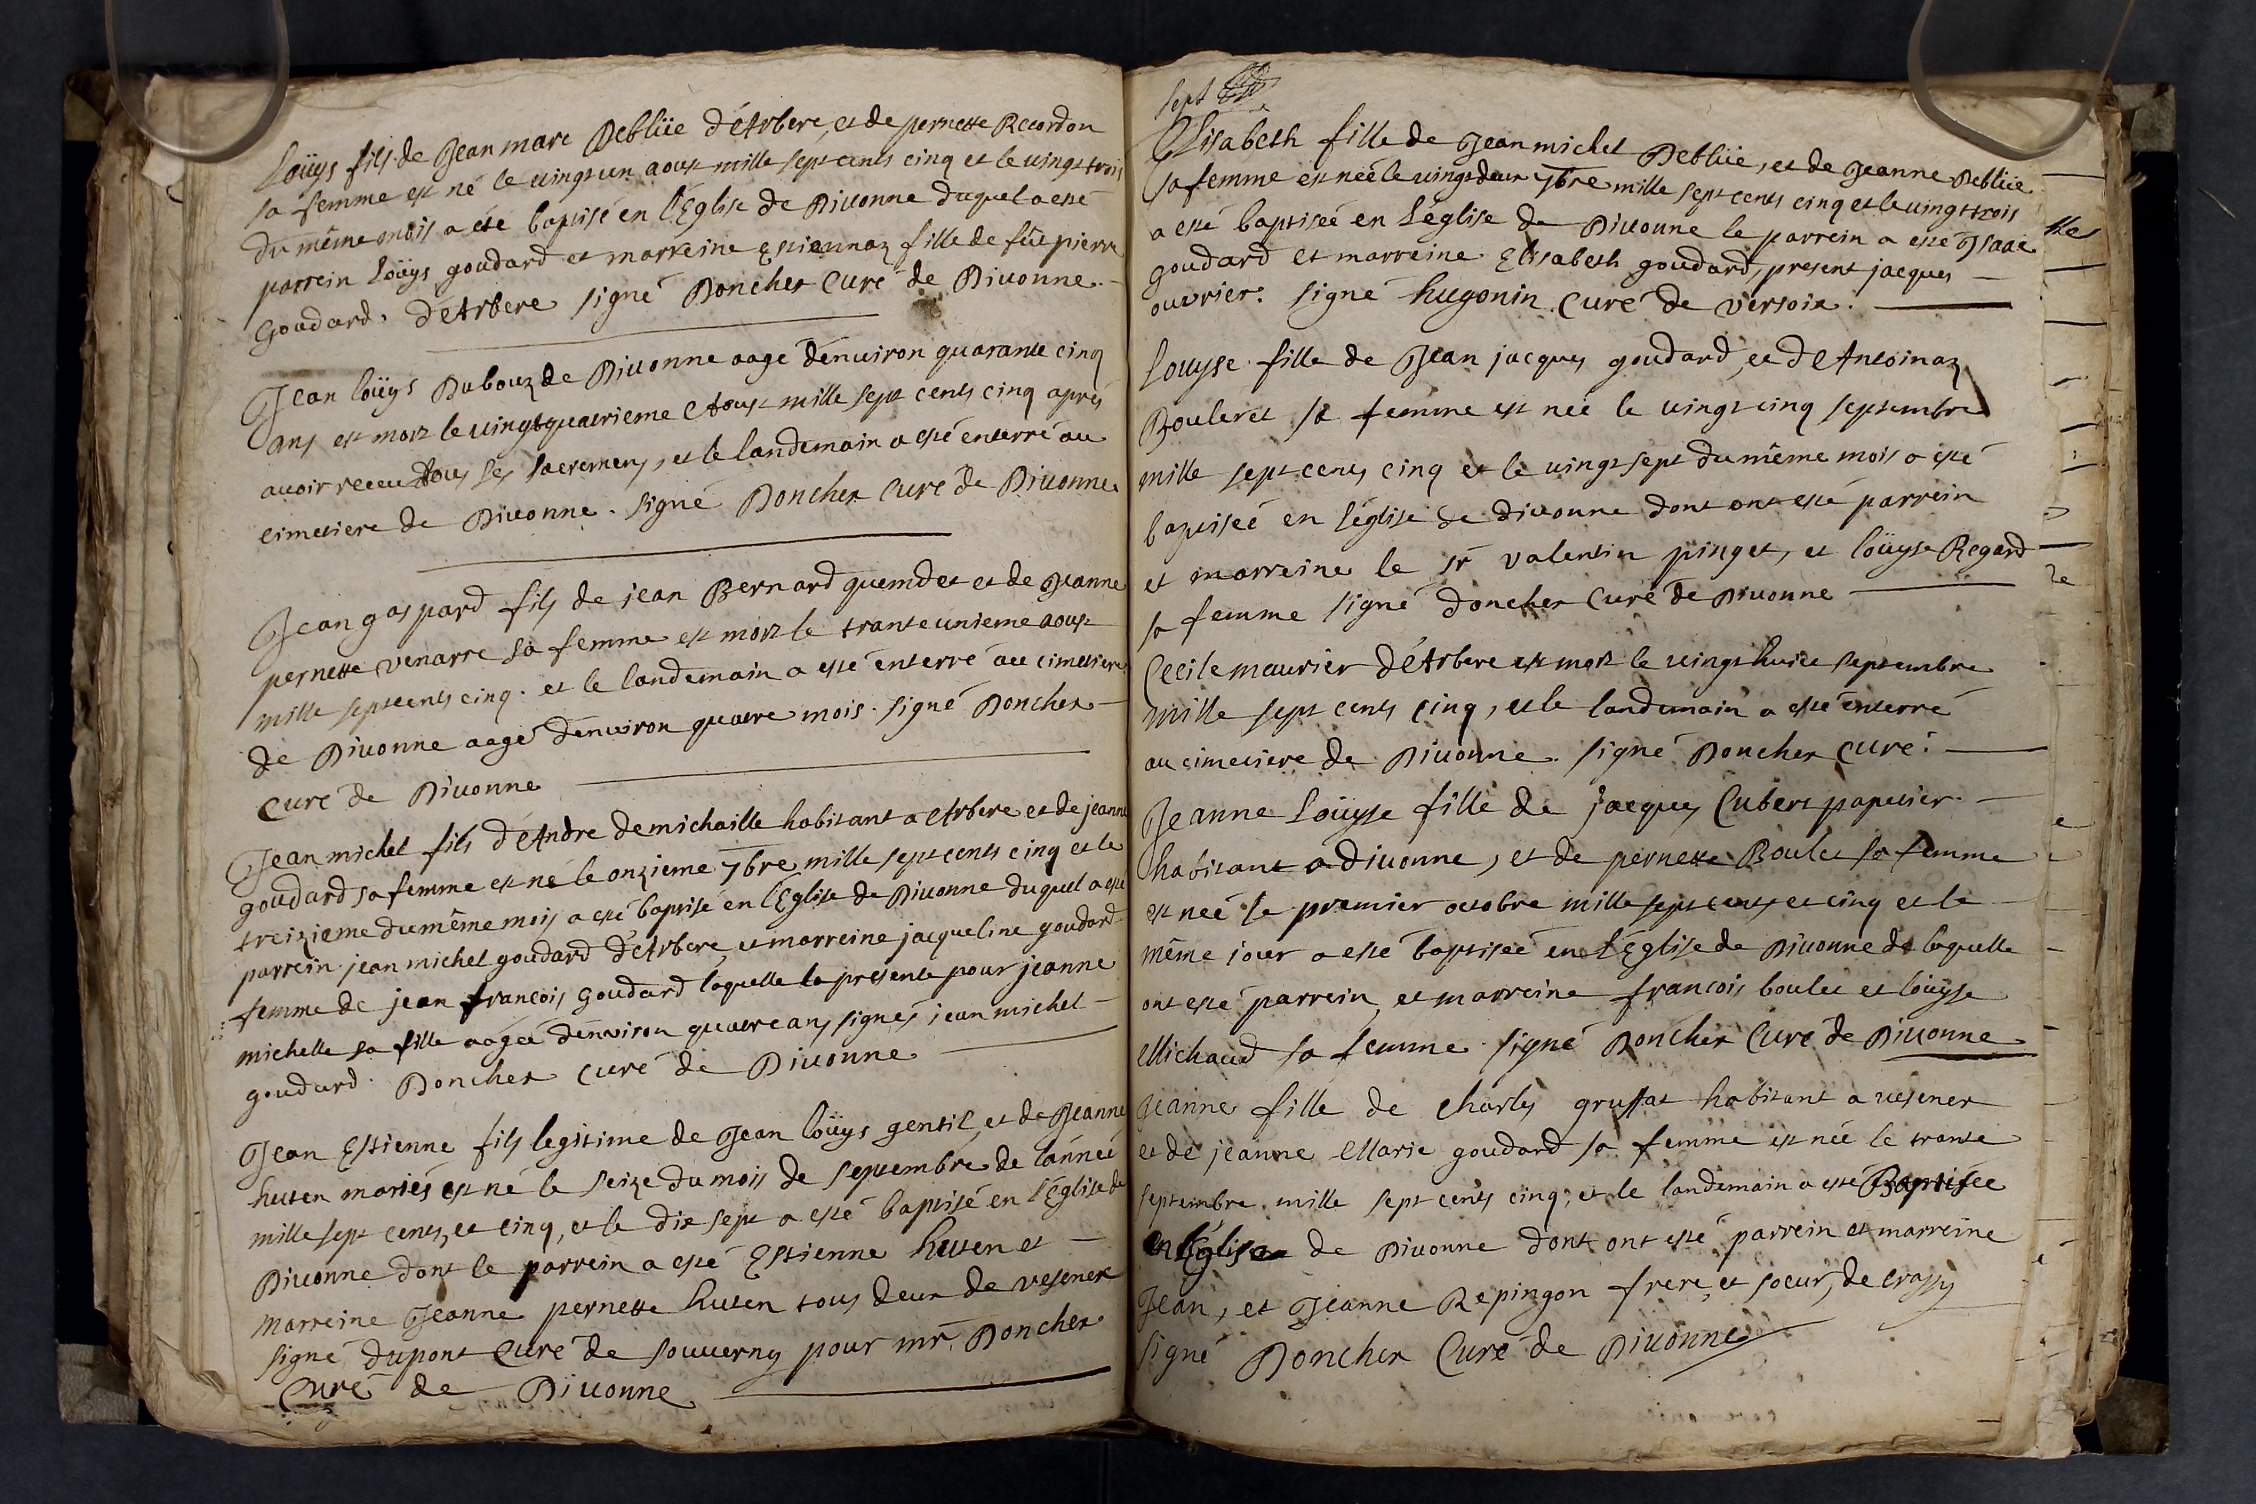 Loüys fils de Jean marc Deblüe d'Arbere, et de pernette Recordon
sa femme est né le vingt un aoust mille sept cents cinq et le vingt trois
du même mois a été baptisé en l'Église de Divonne duquel a esté
parrein Loüys goudard et marreine Estiennaz fille de füt pierre
Goudard d'Arbere signé Doncher Curé de Divonne.
Jean loüys Dubouz de Divonne aagé d'environ quarante cinq
ans est mort le vingtquatrieme Aoust mille sept cents cinq aprés
avoir receu tous ses sacremens, et le landemain a esté enterré au
cimetiere de Divonne. signé Doncher Curé de Divonne
Jean gaspard fils de jean Bernard quemdet et de Jeanne
pernette venarre sa femme est mort le trante unieme aoust
mille sept cents cinq. et le landemain a esté enterré au cimetiere
de Divonne aagé d'environ quatre mois. signé Doncher
Curé de Divonne
Jean michel fils d'Andre demichaille habitant a Arbere et de jeanne
goudard sa femme est né le onzieme 7bre mille sept cents cinq et le
treizieme du même mois a esté baptisé en l'Eglise de Divonne duquel a esté
parrein jean michel goudard d'Arbere, et marreine jacqueline goudard
femme de jean françois Goudard laquelle la presente pour jeanne
michelle sa fille aagée d'environ quatre ans signés jean michel
goudard. Doncher curé de Divonne
Jean Estienne fils legitime de Jean loüys gentil, et de Jeanne
huten mariés est né le seize du mois de septembre de l'année
mille sept cents, et cinq, et le dix sept a esté baptisé en l'Église de
Divonne dont le parrein a esté Estienne huten et
marreine Jeanne pernette huten tous deux de vesener
signé dupont Curé de souverny pour mr. Doncher
Curé de Divonne
sept
Elisabeth fille de Jean michel Deblüe, et de Jeanne Deblüe
sa femme est neé le vingt deux 7bre mille sept cents cinq et le vingt trois
a esté baptiseé en l'église de Divonne le parrein a esté Isaac
goudard et marreine Elisabeth goudard, present jacques
ouvrier. signé hugonin Curé de versoix.
Louyse fille de Jean jacques goudard, et d'Antoinaz
Bouleret sa femme est neé le vingt cinq septembre
mille sept cents cinq et le vingt sept du même mois a esté
baptiseé en l'église de divonne dont ont esté parrein
et marreine le sr valentin pinget, et loüyse Regard
sa femme signé doncher Curé de Divonne
Cecile maurier d'Arbere est mort le vingt huict septembre
mille sept cents cinq, et le landemain a esté enterré
au cimetiere de Divonne. signé Doncher curé.
Jeanne Loüyse fille de jacques Cubert papetier.
habitant a divonne, et de pernette Boulet sa femme
est neé le premier octobre mille sept cents et cinq et le
même jour a esté baptiseé en l'Église de Divonne de laquelle
ont esté parrein, et marreine françois boulet et loüyse
Michaud sa femme signé Doncher Curé de Divonne
Jeanne fille de Charles gruffat habitant a vesener
et de jeanne Marie goudard sa femme est née le trante
septembre mille sept cents cinq, et le landemain a esté Baptisée
en l'Église de Divonne dont ont esté parrein et marreine
Jean, et Jeanne Repingon frere, et soeur, de Crassy
signé Doncher Curé de Divonne